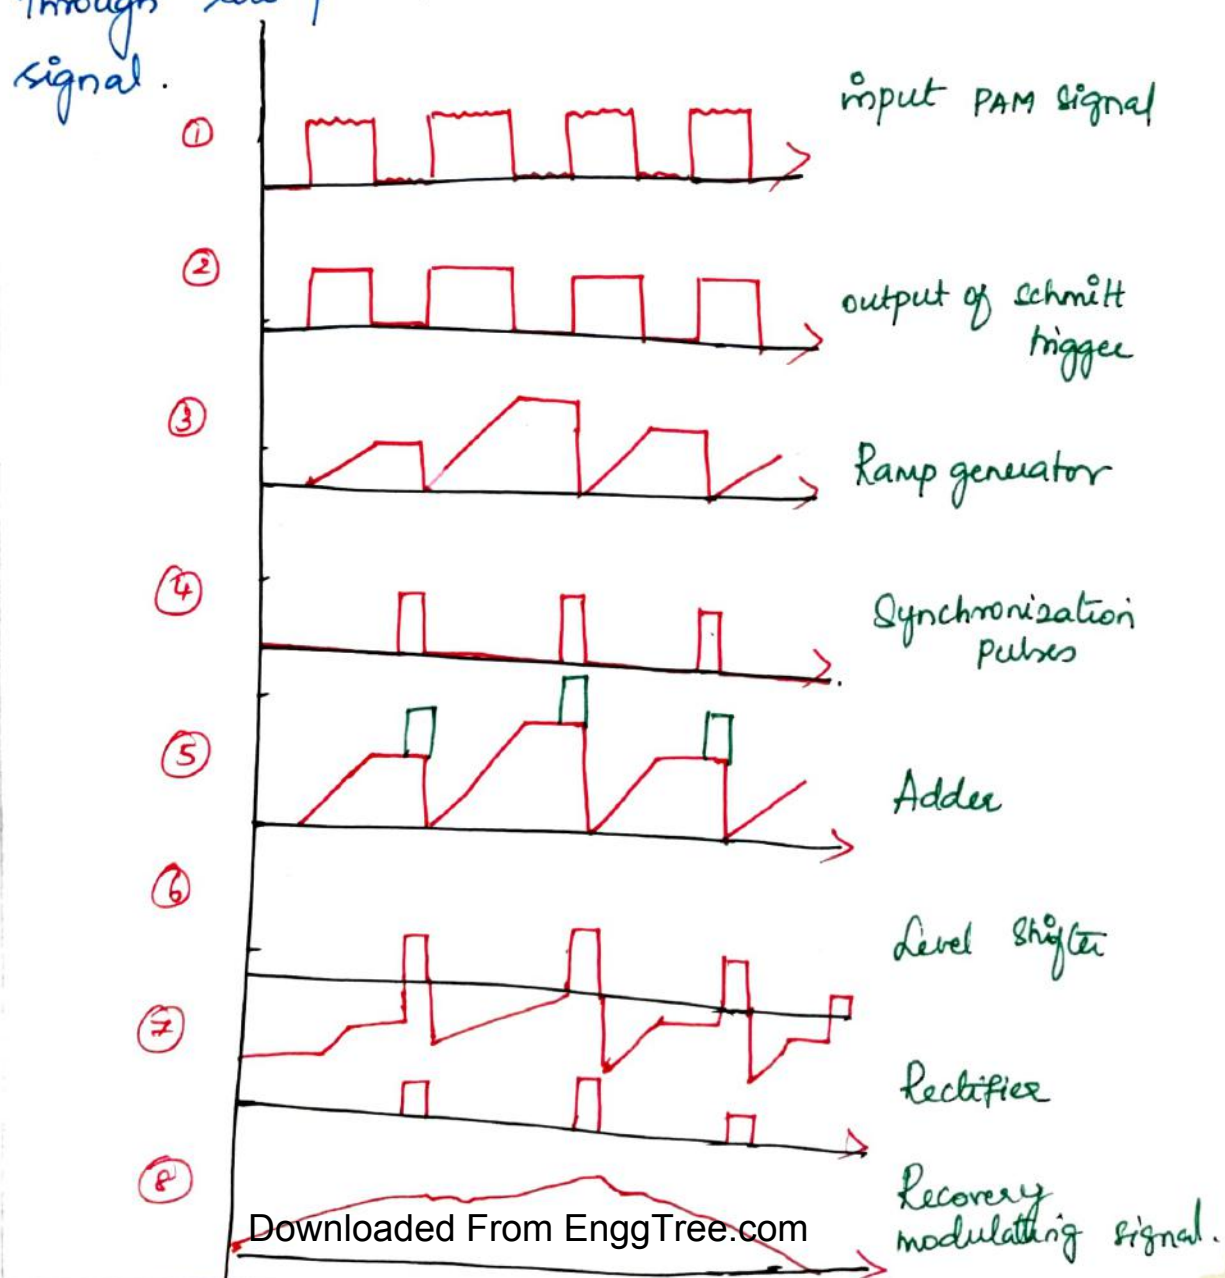 Through
signal.
① input PAM signal
② output of schmitt
trigger
③ Ramp generator
④ Synchronization
pulses
⑤ Adder
⑥ Level Shifter
⑦ Rectifier
⑧ Recovery
modulating signal.
Downloaded From EnggTree.com